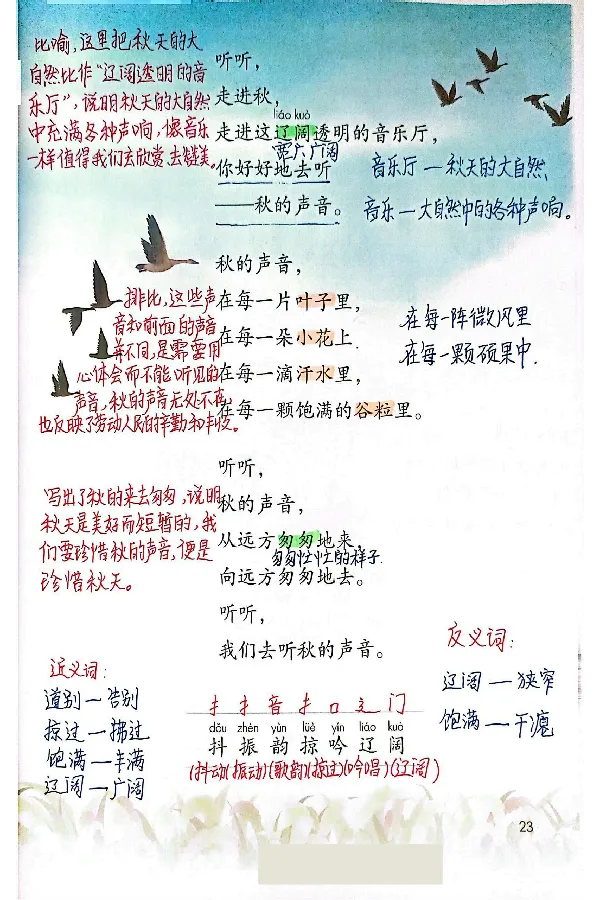 比喻，这里把秋天的大
自然比作“辽阔透明的音
乐厅”，说明秋天的大自然
中充满各种声响，像音乐
一样值得我们去欣赏、去赞美。
听听，
走进秋，
liáo kuò
走进这辽阔透明的音乐厅，
要大广阔
你好好地去听
——秋的声音。
音乐厅—秋天的大自然
音乐—大自然中的各种声响。
秋的声音，
在每一片叶子里，
在每一朵小花上，
在每一滴汗水里，
在每一颗饱满的谷粒里。
排比，这些声
音和前面的声音
并不同，是需要用
心体会而不能听见的
声音，秋的声音无处不在，
也反映了劳动人民的辛勤和丰收。
在每一阵微风里
在每一颗硕果中．
听听，
秋的声音，
从远方匆匆地来，
匆匆忙忙的样子．
向远方匆匆地去。
听听，
我们去听秋的声音。
写出了秋的来去匆匆，说明
秋天是美好而短暂的，我
们要珍惜秋的声音，便是
珍惜秋天。
近义词：
道别—告别
掠过—拂过
饱满—丰满
辽阔—广阔
反义词：
辽阔—狭窄
饱满—干瘪
扌 扌 音 扌 口 辶 门
dǒu zhèn yùn lüè yín liáo kuò
抖 振 韵 掠 吟 辽 阔
(抖动)(振动)(歌韵)(掠过)(吟唱)(辽阔)
23